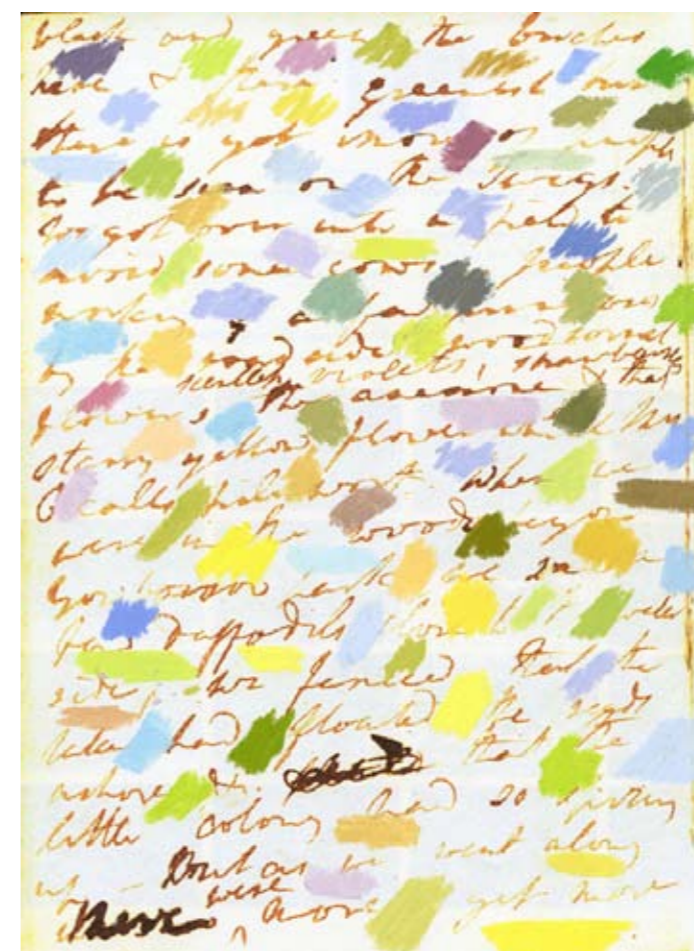 black and green, the birches
here & there greenish but
there is yet more of purple
to be seen on the Twigs.
We got over into a field to
avoid some cows people
working, a few primroses
by the road side, wood sorrel
scentless violets, strawberries
flowers, the anemone & that
starry yellow flower which Mrs
C calls pile wort. When we
were in the woods beyond
Gowbarrow park we
few Daffodils close to the water
side, we fancied that the
lake had floated the seeds
ashore &. that the
little colony had so sprung
up - But as we went along
there were more yet more